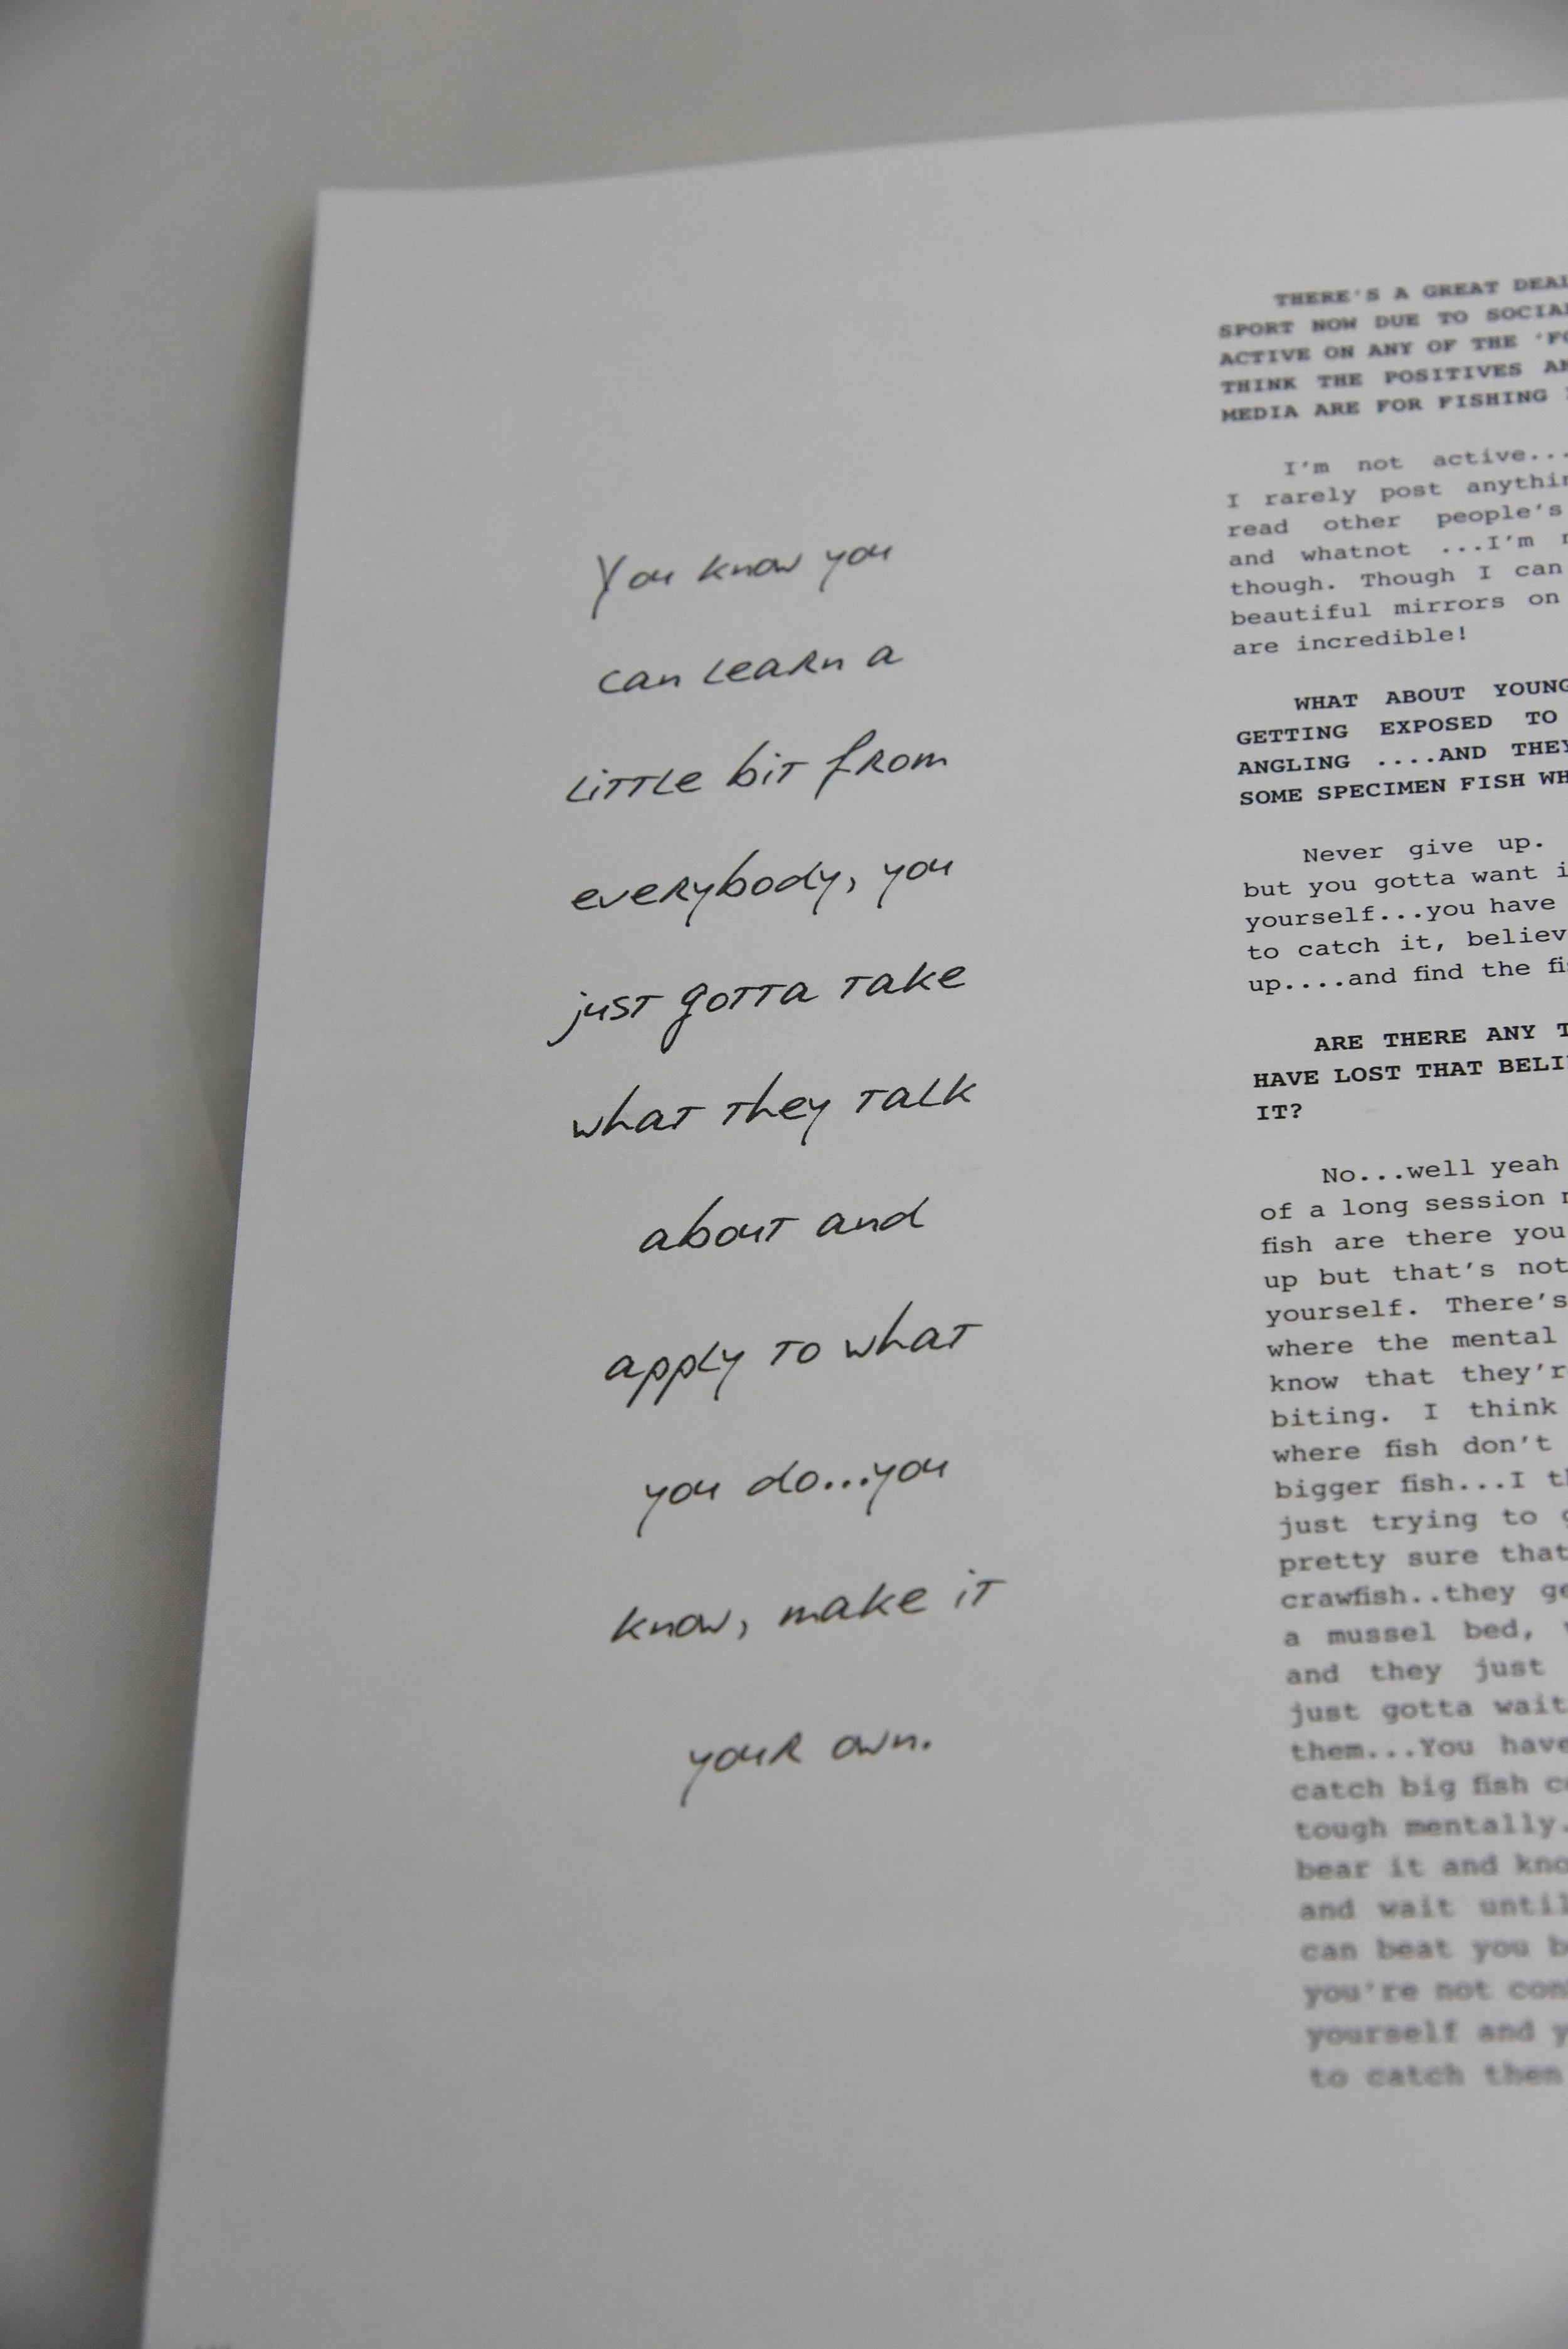 You know you
can learn a
little bit from
everybody, you
just gotta take
what they talk
about and
apply to what
you do...you
know, make it
your own.
THERE'S A GREAT DEAL
SPORT NOW DUE TO SOCIAL
ACTIVE ON ANY OF THE
THINK THE POSITIVES
MEDIA ARE FOR FISHING
I'm not active...
I rarely post
read other people's
and whatnot ...I'm
though. Though I can
beautiful mirrors on
are incredible!
WHAT ABOUT
GETTING EXPOSED TO
ANGLING ....AND THEY
SOME SPECIMEN FISH
Never give up.
but you gotta want
yourself...you have
to catch it,
up....and find the
ARE THERE ANY
HAVE LOST THAT
IT?
No...well yeah
of a long session
fish are there you
up but that's not
yourself. There's
where the mental
know that
biting. I think
where fish don't
bigger fish...I
just trying to
pretty sure that
crawfish..they
a mussel bed,
and they just
just gotta wait
them...You have
catch big fish
tough mentally.
bear it and
and wait until
can beat you
you're not
yourself and
to catch then